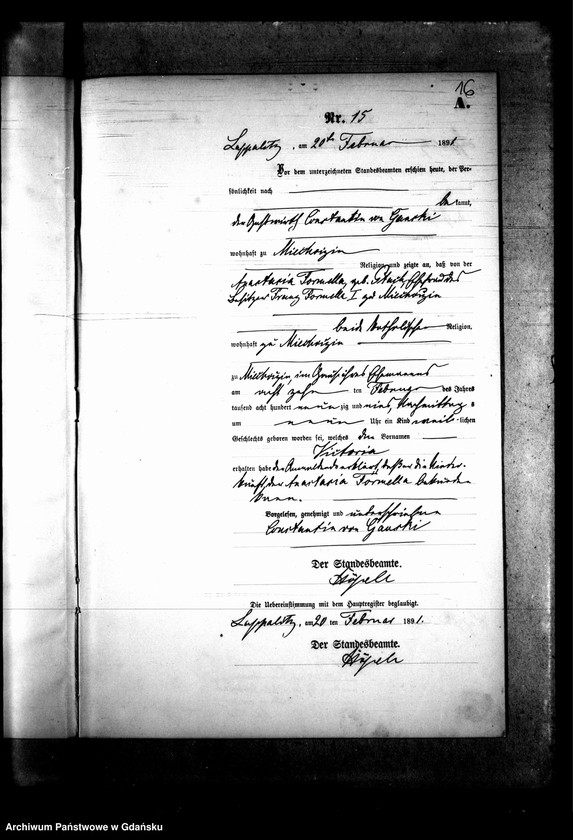 16
A.
Nr. 15
am 20ten Februar 1891
Vor dem unterzeichneten Standesbeamten erschien heute, der Per-
sönlichkeit nach
bekannt,
der Gastwirth Constantin von
wohnhaft zu
Religion und zeigte an, daß von der
Formella, geb. Ehefrau des
Besitzer Franz Formella I zu
beide katholischer Religion,
wohnhaft zu
zu im Hause ihres Ehemannes
am achtzehn ten Februar des Jahres
tausend acht hundert neunzig und eins, Nachmittags
um neun Uhr ein Kind weiblichen
Geschlechts geboren worden sei, welches den Vornamen
Victoria
erhalten habe. Der Anmeldende erklärt, daß er die Nieder-
kunft der Anastasia Formella bekunden
kann.
Vorgelesen, genehmigt und unterschrieben
Constantin von
Der Standesbeamte.
Die Uebereinstimmung mit dem Hauptregister beglaubigt.
am 20 ten Februar 1891.
Der Standesbeamte.
Archiwum Państwowe w Gdańsku